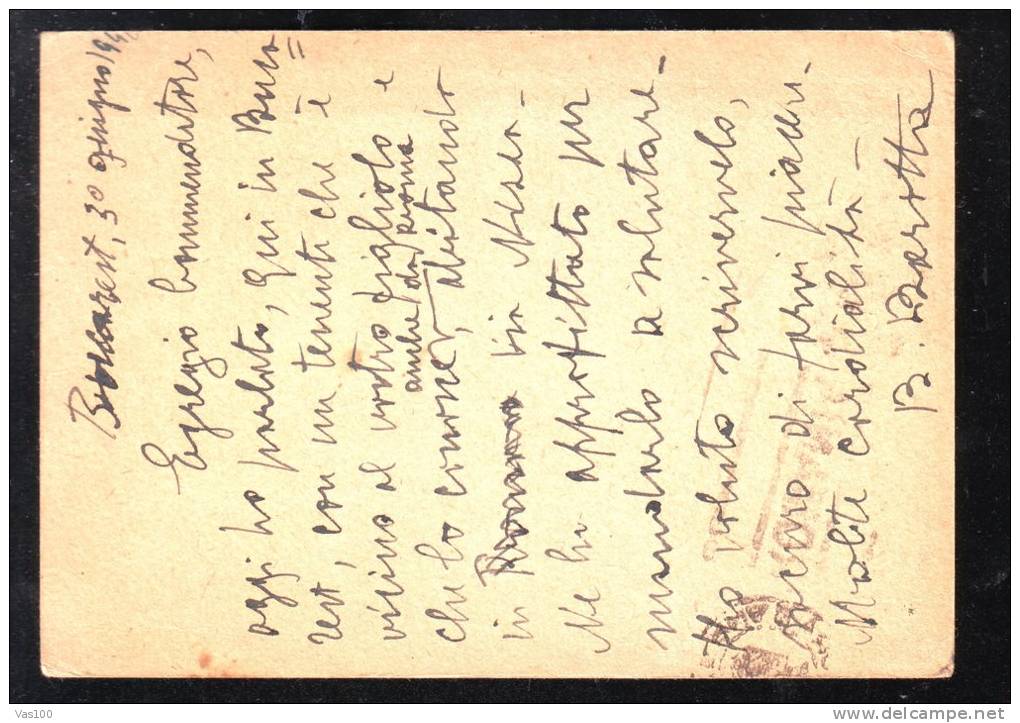 Bucarest, 30 giugno 194
Egregio Commendatore,
oggi ho parlato, qui in Buca=
rest, con un tenente che è
vicino al vostro figliolo e
che lo conosce, anche da prima
abitando
in Roma via Messi-
Ne ho approfittato per
mandarlo a salutare.
Ho voluto scrivervelo,
sicuro di farvi piacere.
Molte cordialità -
B. Barotta
Vas100
delcampe.net